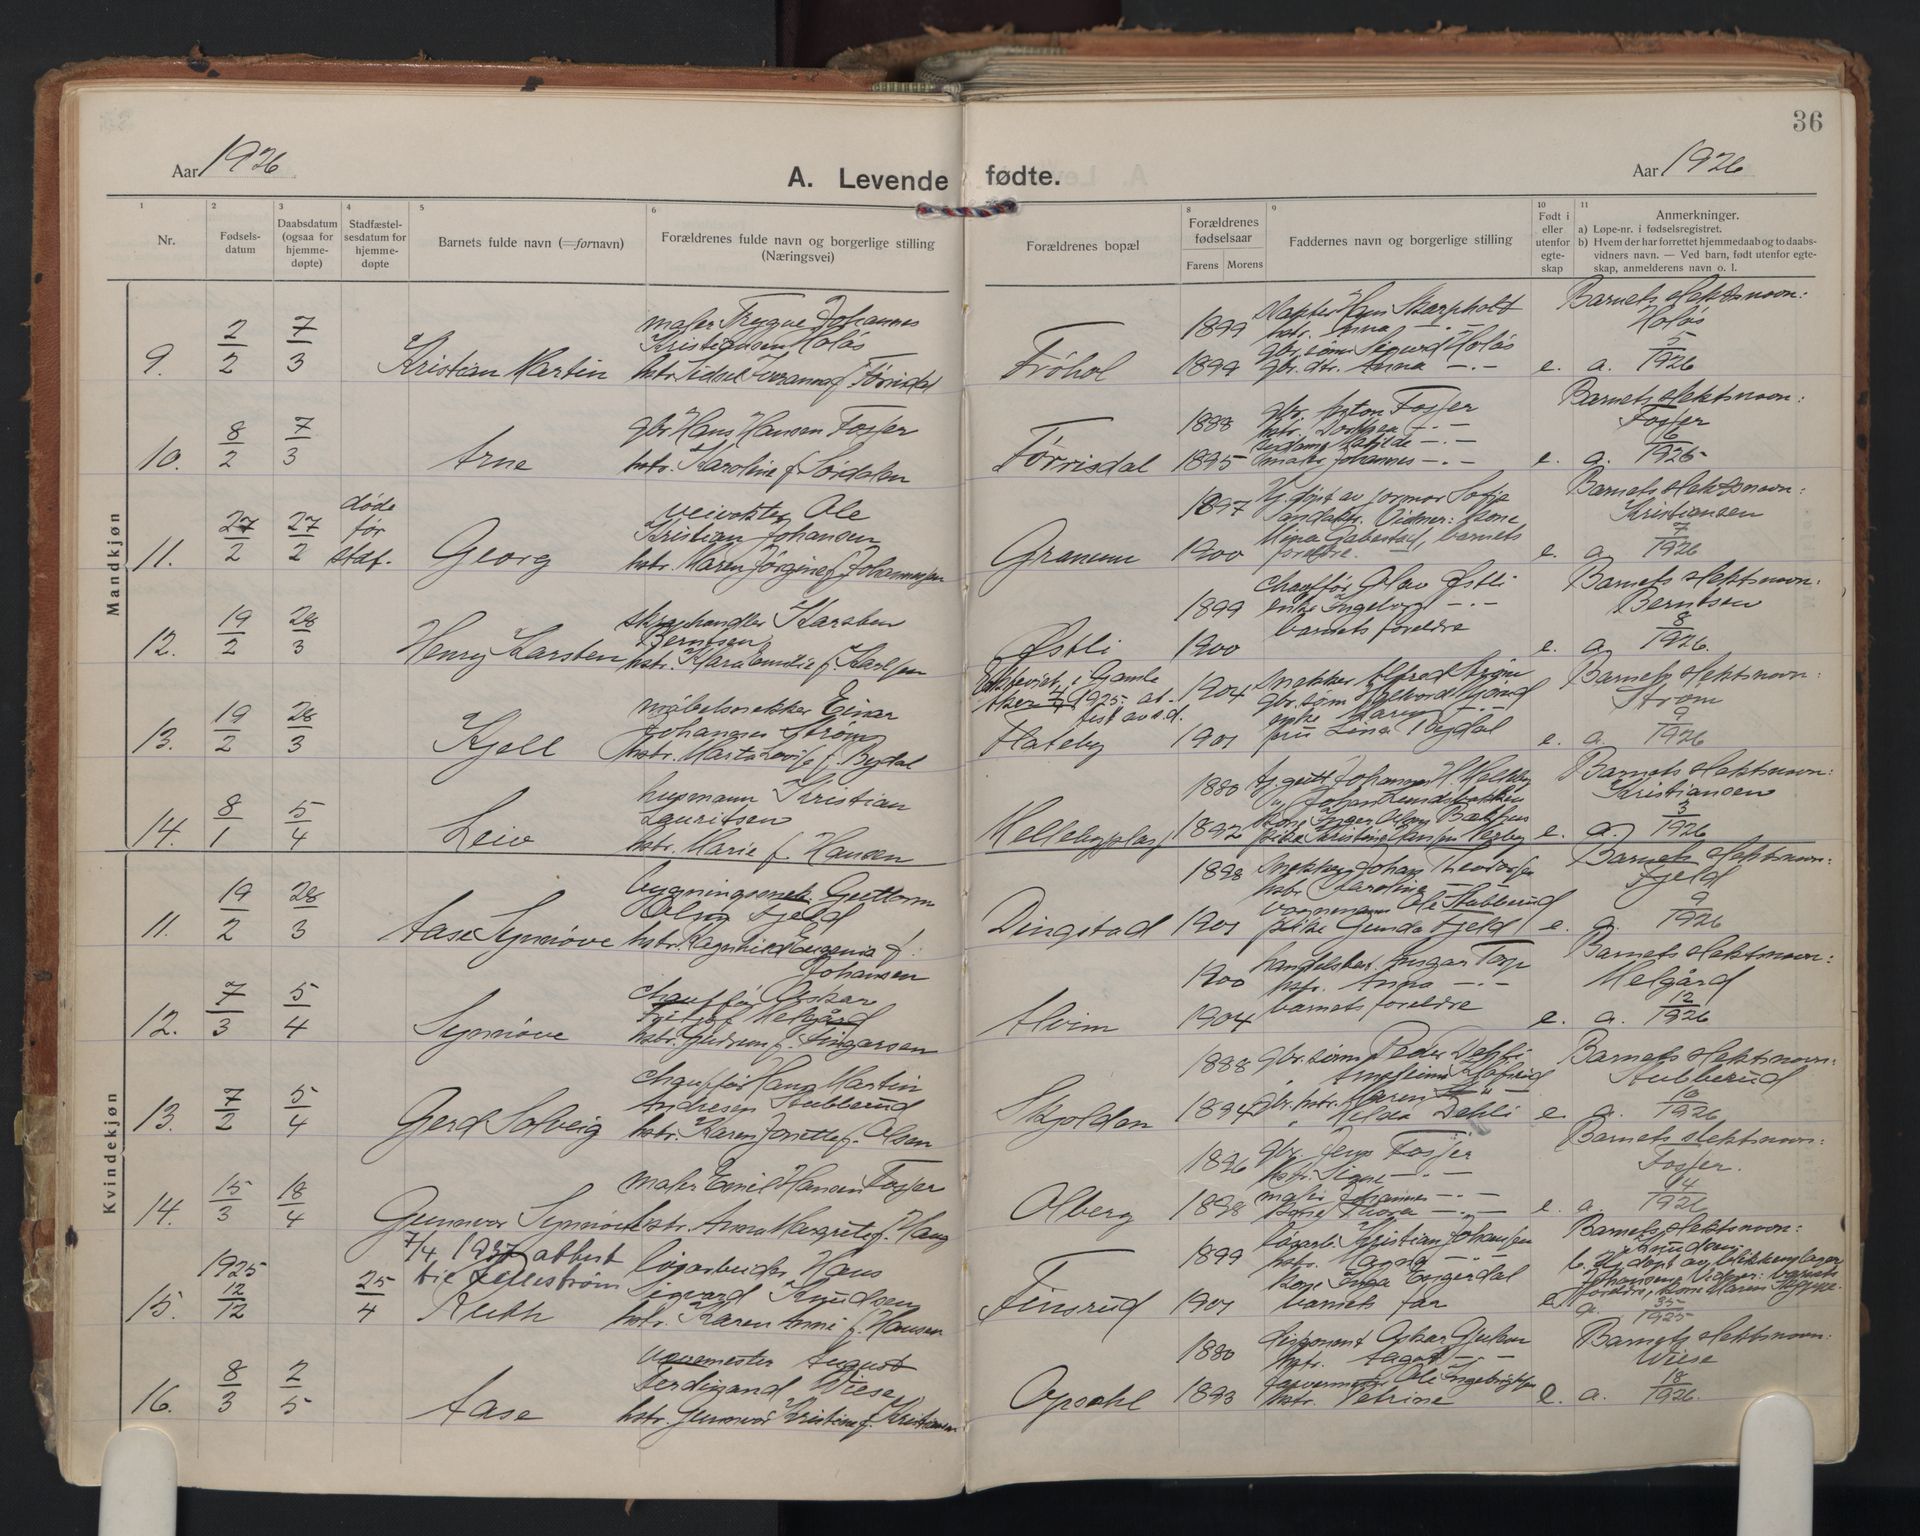 36
Aar 1926
A. Levende fødte.
Aar 1926
1 2 3 4 5 6 8 9 10 11
Nr.
Fødsels-
datum
Daabsdatum
(ogsaa for
hjemme-
døpte)
Stadfæstel-
sesdatum for
hjemme-
døpte
Barnets fulde navn (=fornavn)
Forældrenes fulde navn og borgerlige stilling
(Næringsvei)
Forældrenes bopæl
Forældrenes
fødselsaar
Farens Morens
Faddernes navn og borgerlige stilling
Født i
eller
utenfor
egte-
skap
Anmerkninger.
a) Løpe-nr. i fødselsregistret.
b) Hvem der har forrettet hjemmedaab og to daabs-
vidners navn. — Ved barn, født utenfor egte-
skap, anmelderens navn o. l.
Mandkjøn
9. 2/2 7/3 Kristian Martin
maler Trygve Johannes
Kristiansen Holås
hstr. f. Førrisdal
Frøhol
1899
1899
Hans Skarpholt
hstr. Anna —
gbr. søn Sigurd Holås
gbr. dtr. Anna — . —
e.
Barnets slektsnavn:
Holås
a. 5/1926
10. 8/2 7/3 Arne
gbr. Hans Hansen Fosser
hstr. Karoline f. Sørdalen
Førrisdal
1888
1895
gbr. Anton Fosser
hstr. — . —
Matilde — . —
maler Johannes — . —
e.
Barnets slektsnavn:
Fosser
a. 6/1926
11. 27/2 27/2
døde
før
stadf.
Georg
veivokter Ole
Kristian Johansen
hstr. Maren Jørgine f. Johannessen
Granum
1897
1900
Hj. døpt av jormor Sofie
Vidner: kone
barnets
foreldre.
e.
Barnets slektsnavn:
Kristiansen
a. 7/1926
12. 19/2 28/3 Henry Karsten
Karsten
Berntsen
hstr. Klara Emilie f. Karlsen
Østli
1899
1900
chauffør Olav Østli
enke Ingeborg — . —
barnets foreldre
e.
Barnets slektsnavn:
Berntsen
a. 8/1926.
13. 19/2 28/3 Kjell
møbelsnekker Einar
Johannes Strøm
hstr. Marta Lovise f. Bøgdal
i Gamle
Aker 1925
Flateby
1904
1901
snekker Alfred
gbr. søn
enke Karen — . —
fru Lina Bøgdal
e.
Barnets slektsnavn:
Strøm
a. 9/1926
14. 8/1 5/4 Leiv
husmann Kristian
Lauritsen
hstr. Marie f. Hansen
Hellebyplass
1880
1892
Johannes Helleby
Johan
kone Inger
pike Kristine
e.
Barnets slektsnavn:
Kristiansen
a. 3/1926
Kvindekjøn
11. 19/2 28/3 Aase Synnøve
bygningssnek. Guttorm
Olsen Fjeld
hstr. Ragnhild Eugenia f.
Johansen
Dingstad
1898
1901
snekker Johan Theodorsen
hstr. Karoline —
Ole Stubberud
pike Gunda Fjeld
e.
Barnets slektsnavn:
Fjeld
a. 9/1926
12. 7/3 5/4 Synnøve
chauffør Oskar
Fritjof Melgård
hstr. Gudrun f. Aingersen
Alvim
1900
1904
handelsbest. Ansgar Torp
hstr. Anna — . —
barnets foreldre
e.
Barnets slektsnavn:
Melgård
a. 12/1926
13. 7/2 5/4 Gerd Solveig
chauffør Hans Martin
Andresen Stubberud
hstr. Karen f. Olsen
Skjolden
1888
1894
gbr. søn Peder Dehli
gbr. hstr. Maren
" Hilda Dehli
e.
Barnets slektsnavn:
Stubberud
a. 10/1926
14. 15/3 18/4 Gunnvor Synnøve
maler Emil Hansen Fosser
hstr. Anna Margrete f. Haug
Olberg
1896
1898
gbr. Jens Fosser
hstr. Signe — . —
maler Johannes — . —
kone Thora — . —
e.
Barnets slektsnavn:
Fosser.
a. 14/1926
15. 1925 12/12 25/4
7/4 1937 attest
til Lillestrøm
Ruth
løsarbeider Hans
Sigvard Knudsen
hstr. Karen Anni f. Hansen
Finsrud
1899
1901
løsarb. Kristian Johansen
hstr. Magda —
kone Inga Engerdal
barnets far
e
Barnets slektsnavn:
Knudsen
b. Hj. døpt av blikkenslager
Johansen. Vidner: barnets
foreldre, kone Maren
a. 35/1925
16. 8/3 2/5 Aase
August
Ferdinand Wiese
hstr. Gunnvor Kristine f. Kristiansen
Opsahl
1880
1893
disponent Oskar
hstr. Aagot — . —
Ole Ingebrigtsen
hstr. Petrine —
e.
Barnets slektsnavn:
Wiese
a. 18/1926.